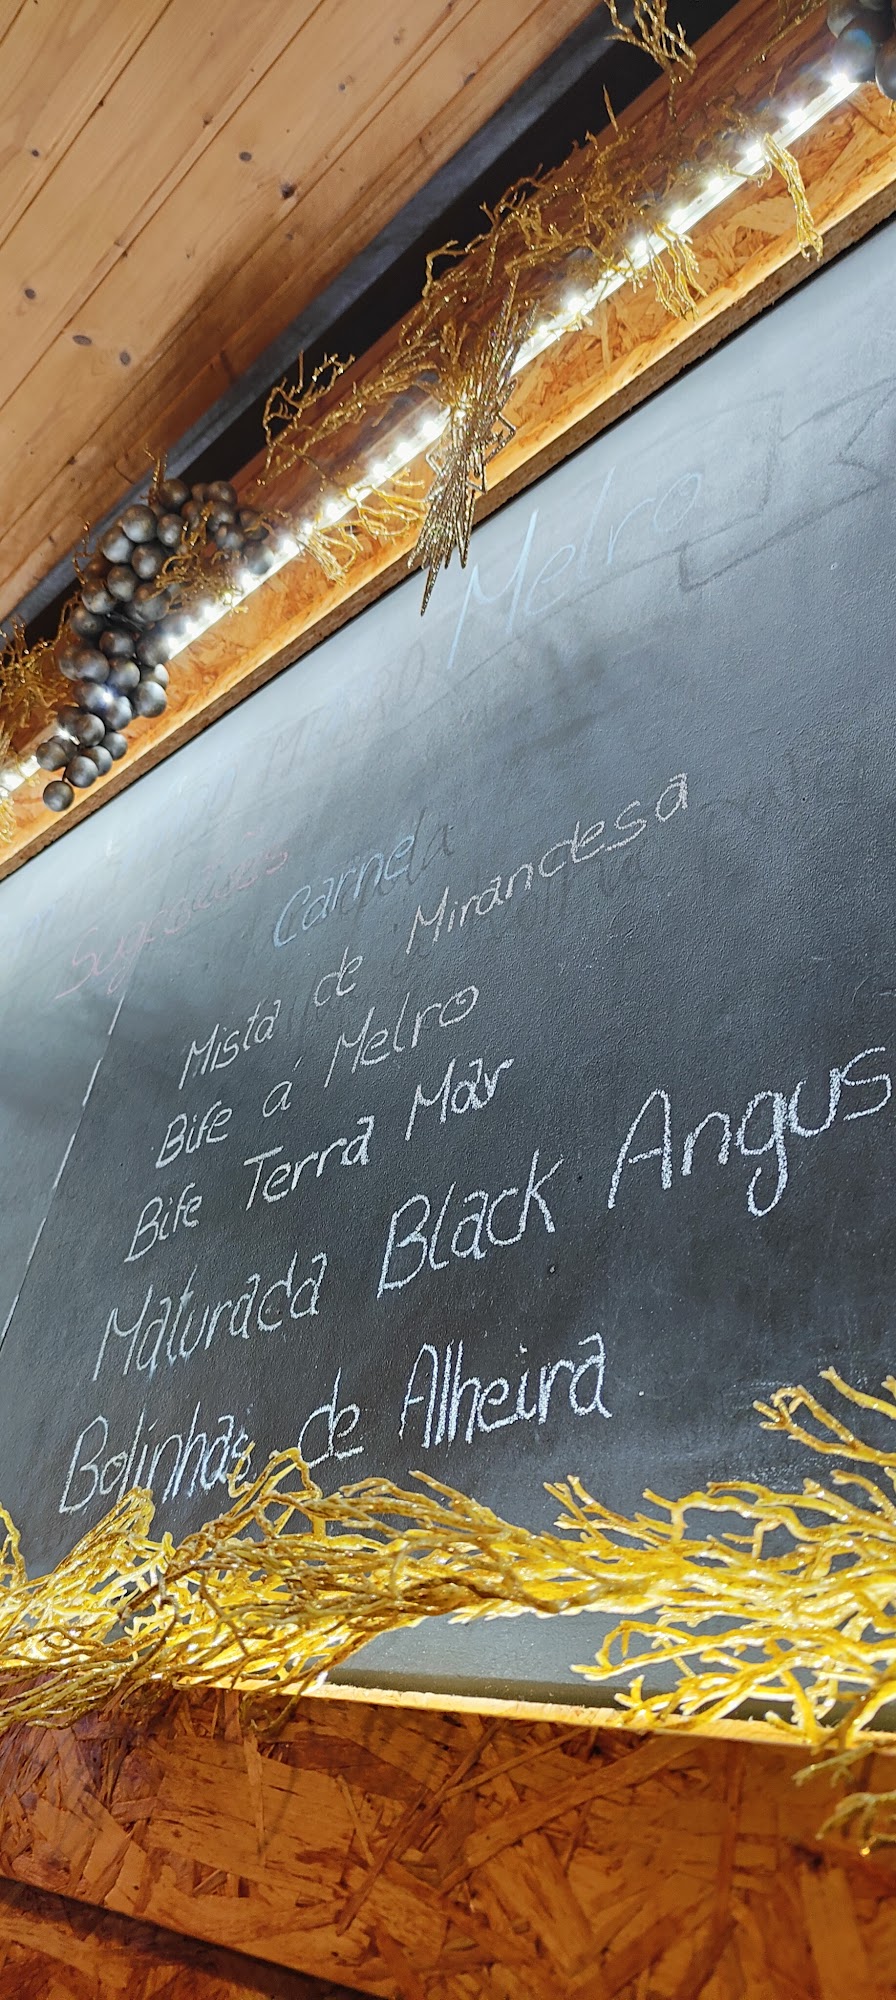 Melro
Sugestões
Carne
Mista de Mirandesa
Bife á Melro
Bife Terra Mar
Maturada Black Angus
Bolinhas de Alheira